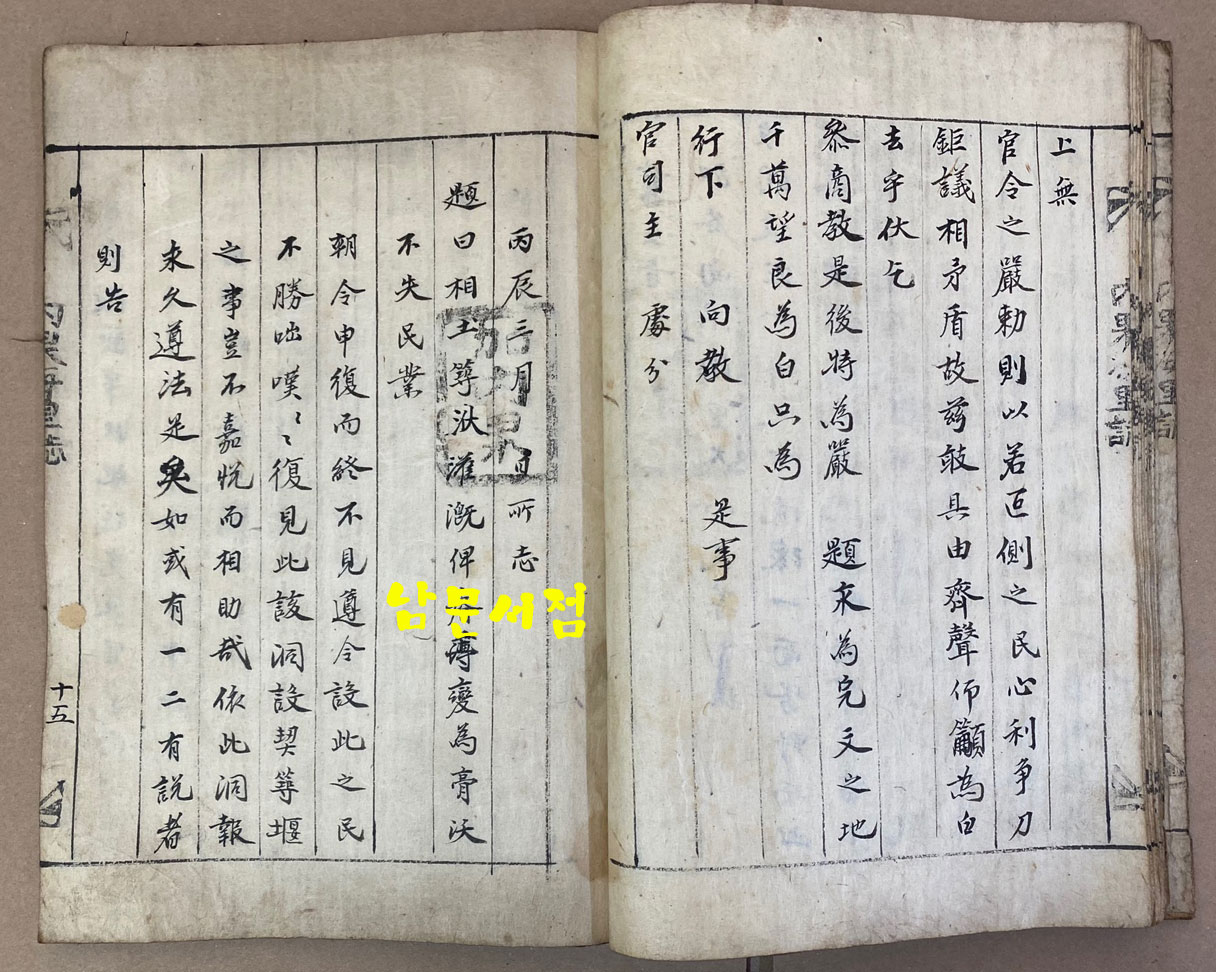 上無
官令之嚴勅則以若叵側之民心利争刀
鉅議相矛盾故玆敢具由齊聲仰籲為白
去乎伏乞
叅商教是後特為嚴 題永為完文之地
千萬望良為白只為
行下 向教 是事
官司主 處分
丙辰三月 日所志
題曰相土築洑灌漑俾 變為膏沃
不失民業
朝令申復而終不見遵令設此之民
不勝咄嘆〻復見此該洞設契築堰
之事豈不嘉悅而相助哉依此洞報
永久遵法足矣如或有一二有說者
則告
十五
남문서점